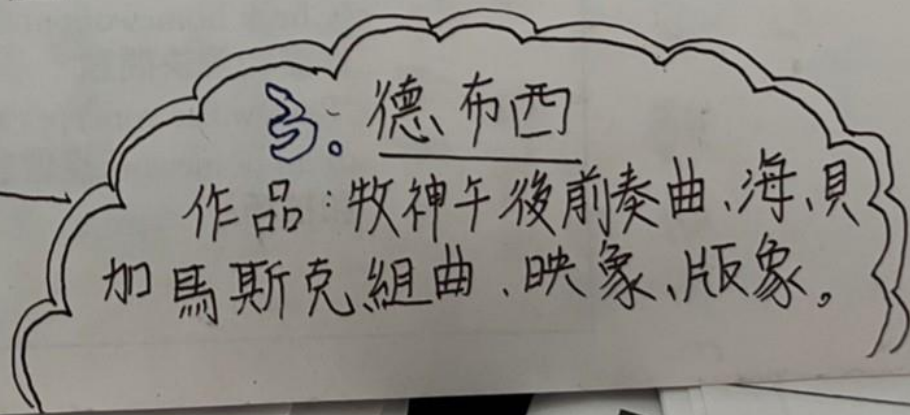 3. 德布西
作品：牧神午後前奏曲、海、貝
加馬斯克組曲、映象、版象。